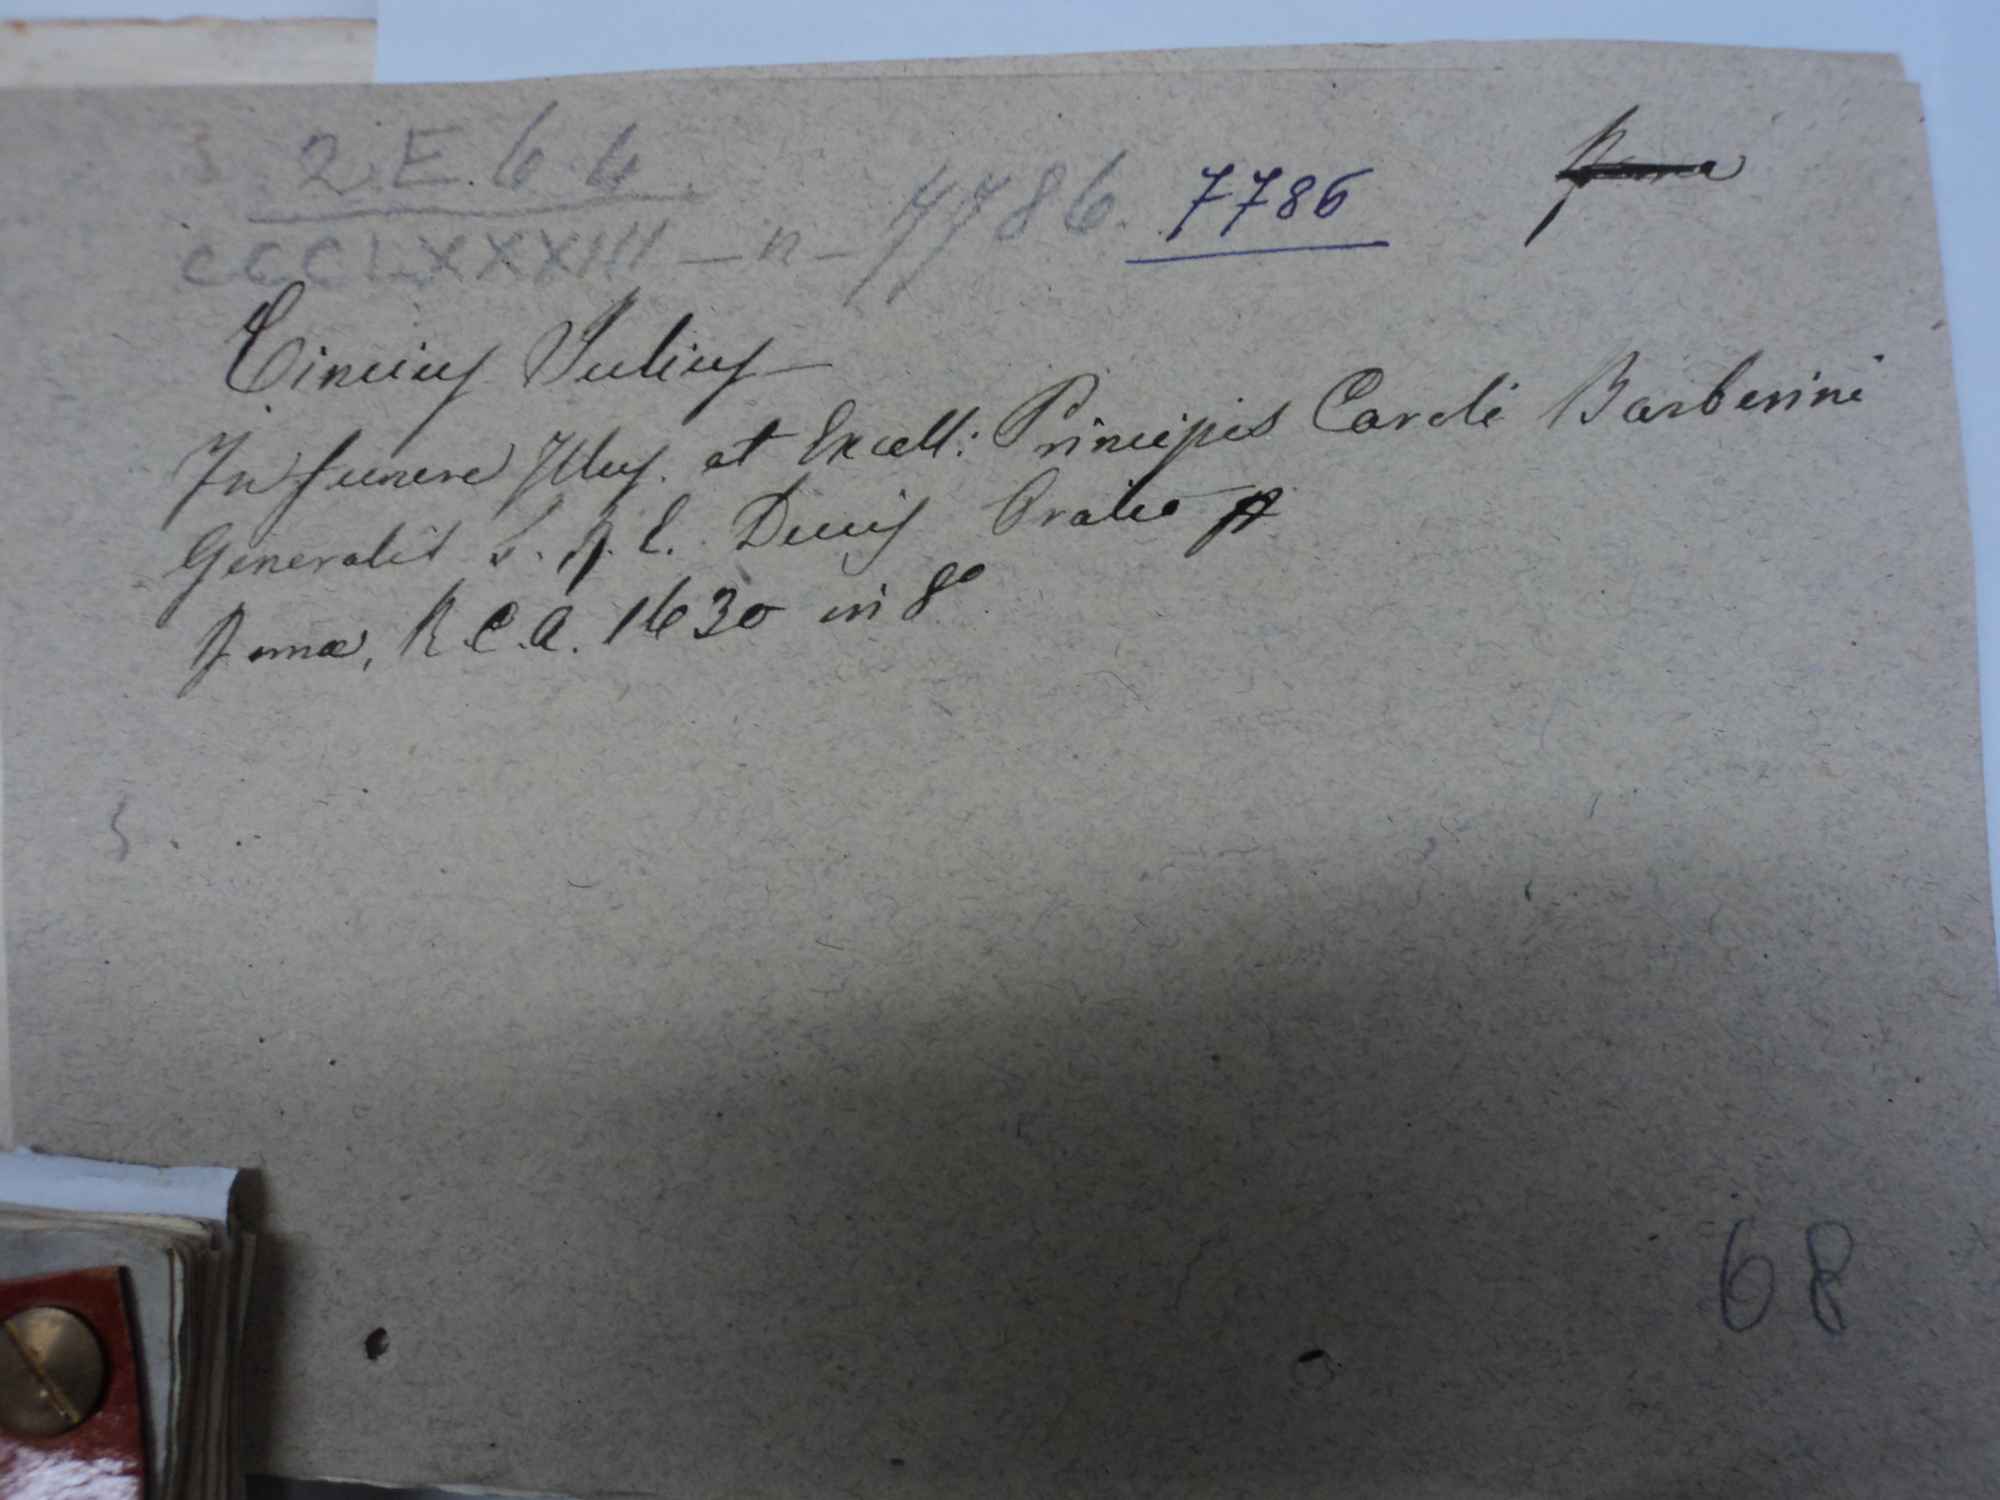 2. E. 6. 4.
CCCLXXXIII - n - 7786. 7786
Cincius Julius
In funere Illus. et Excell: Principis Caroli Barberini
Generalis S. R. E. Ducis Oratio
Romæ, R. C. A. 1630 in 8°
68